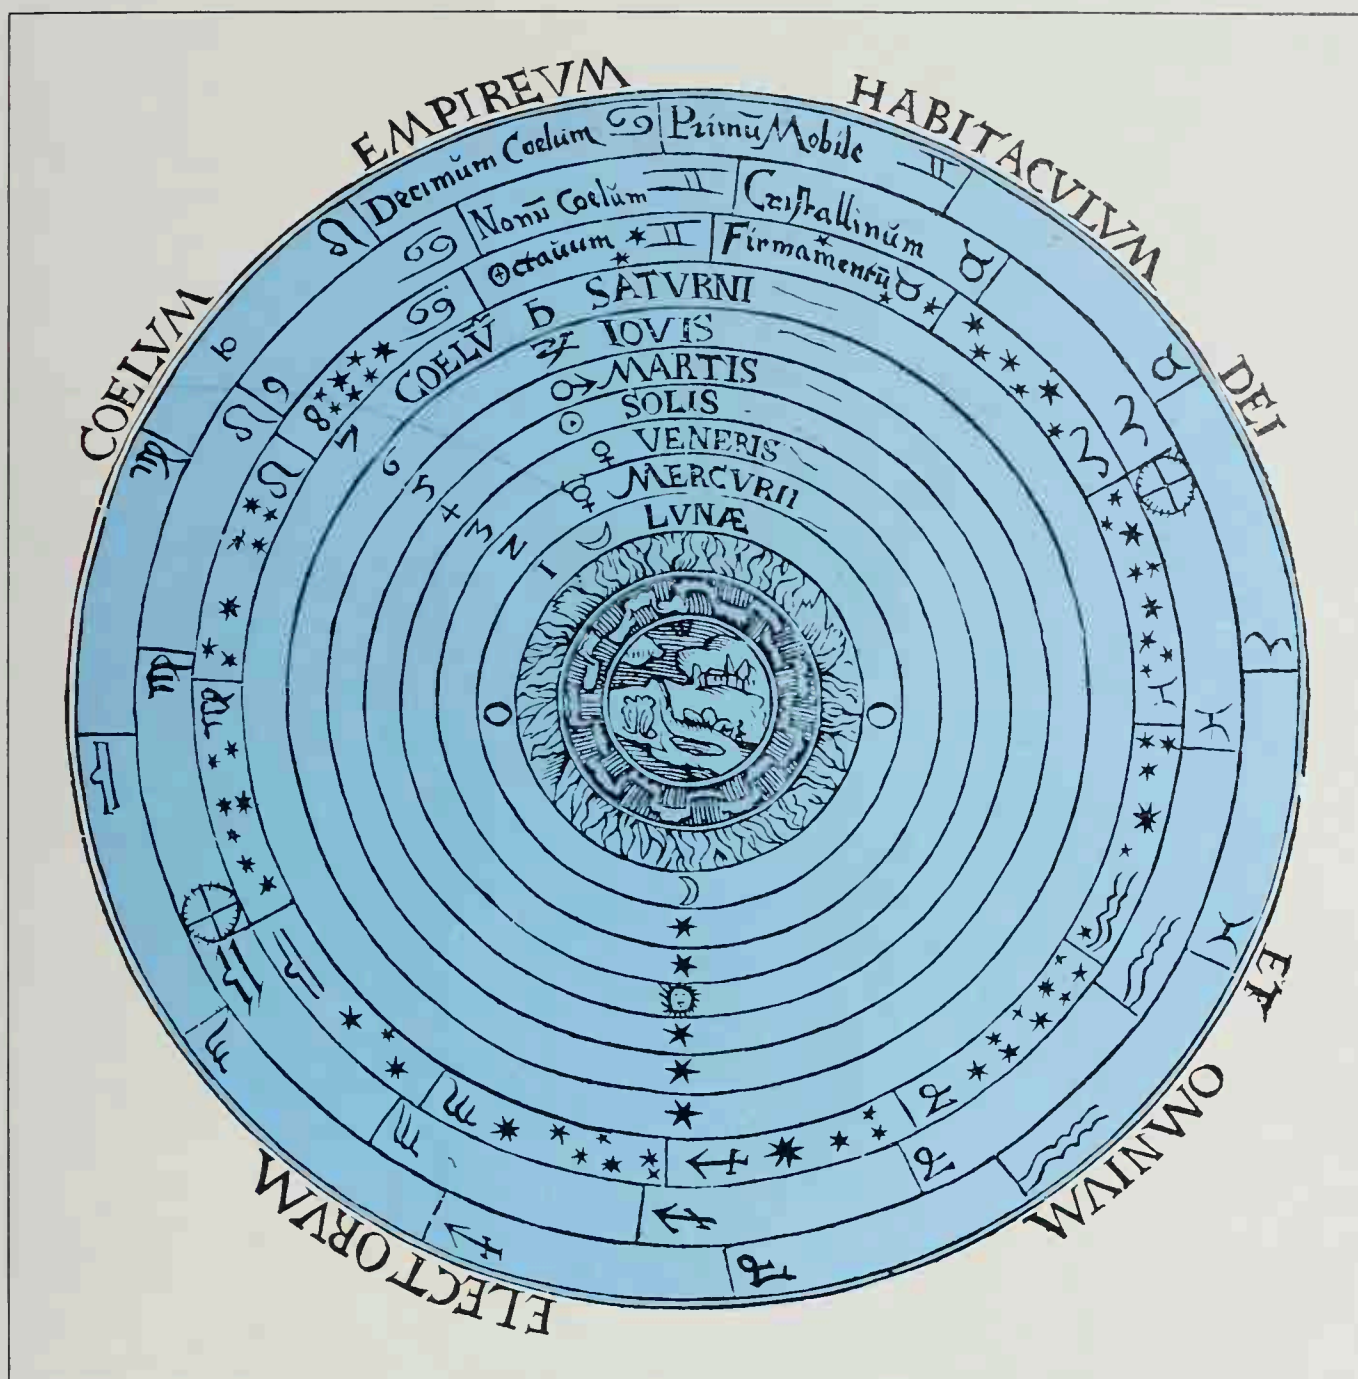 COELVM EMPIREVM HABITACVLVM DEI ET OMNIVM ELECTORVM
Decimŭm Coelum Primū Mobile
Nonū Coelŭm Cristallinŭm
Octauum Firmamentū
8
7 COELV̄ SATVRNI
6 IOVIS
5 MARTIS
4 SOLIS
3 VENERIS
2 MERCVRII
1 LVNÆ